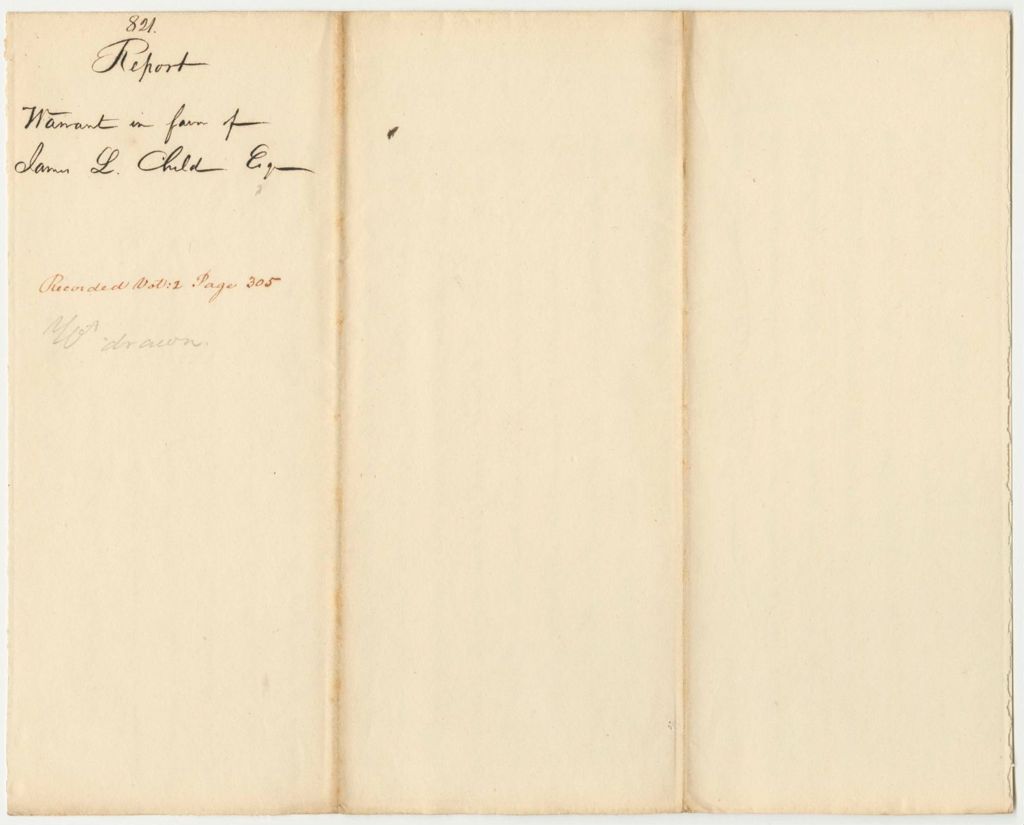 821.
Report
Warrant in favor of
James L. Child Esq
Recorded Vol: 2 Page 305
Wt drawn.